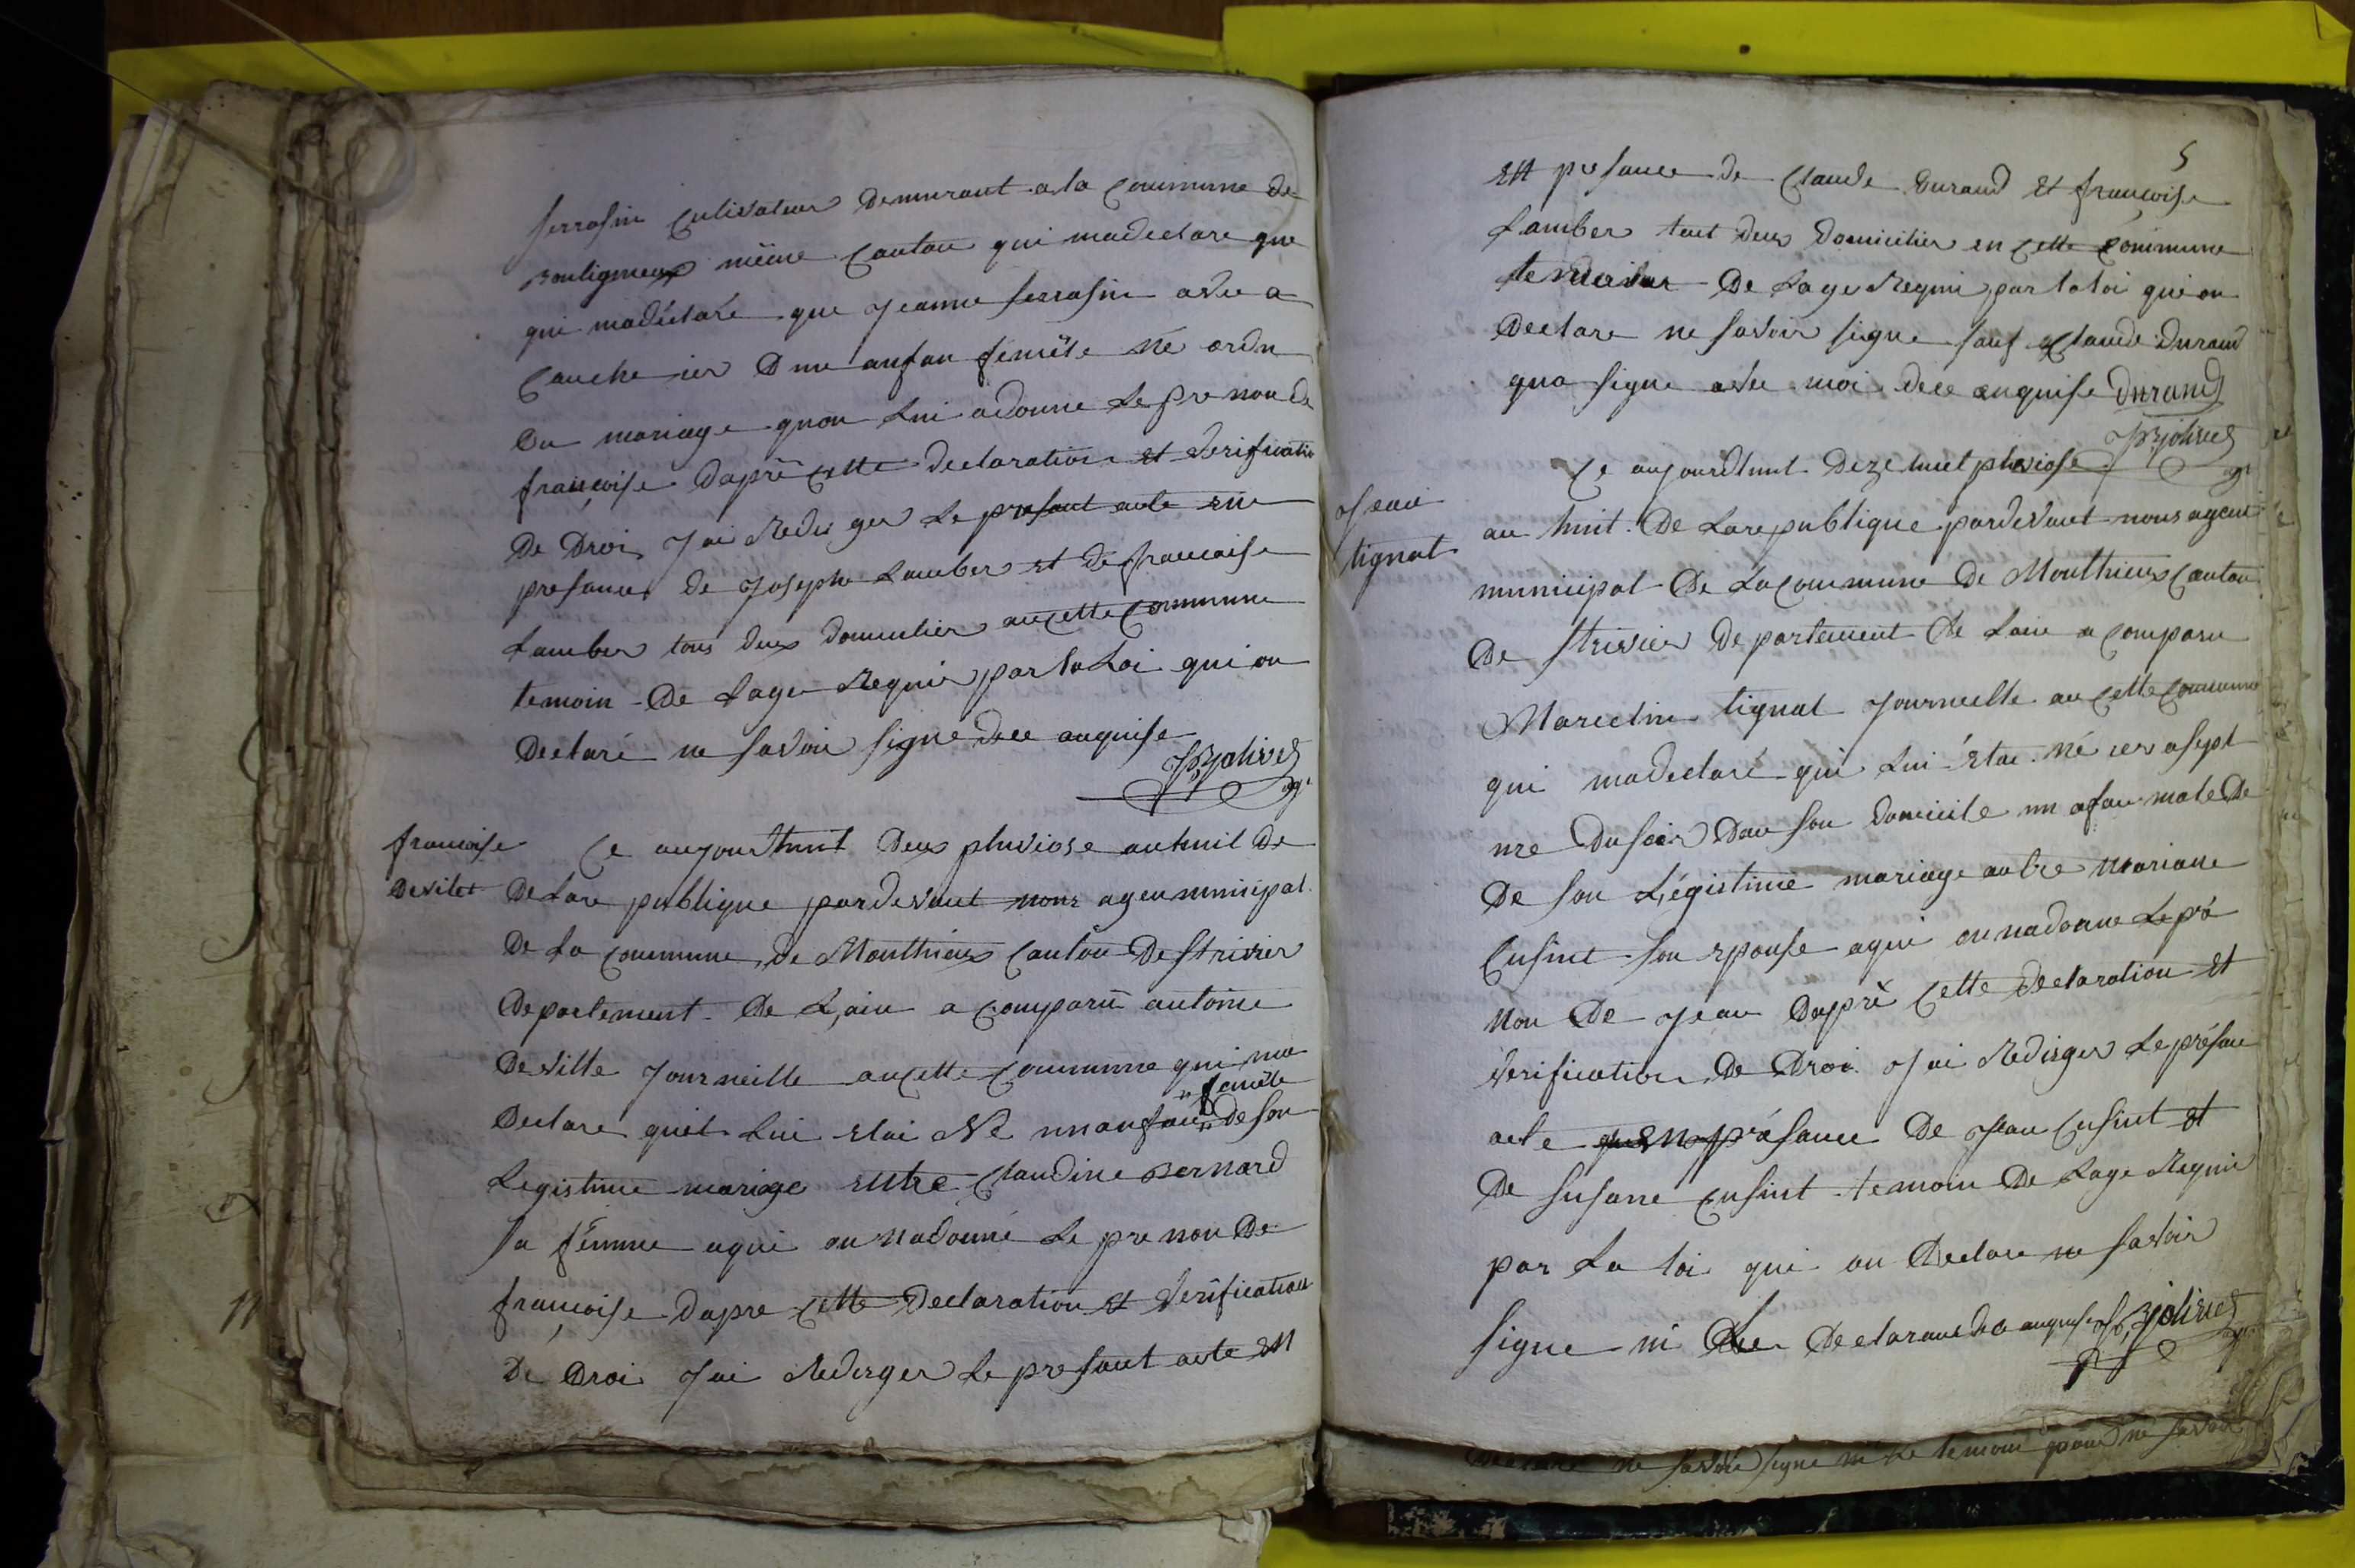 serrasin cultivateur demurant a la commune de
Bouligneux même canton qui madeclare que
qui madéclaré que Jeanne serrasin avec a
couche ier D une anfan femêle né ordu
Du mariage quon Lui a donne Le pre non de
françoise Daprê cette declaration et verification
De Droi J ai Rediger Le presant acte En
presance de Joseph Lamber et de francoise
Lamber tous deux domicilier an cette commune
temoin De Lage Requie par la Loi qui on
Declaré ne savoir signe dece anquise
JBJolivet agt
francoise
Devilet
Ce aujourdhuit Deux pluviose an huit De
De Lare publique par devant nous agen municipal
De La commune de Monthieux canton De strivier
Departement De L'ain a comparû antoine
Deville Journeille an cette commune qui ma
Declare quil Lui Etai Né un anfan "femêle" de son
Legistime mariage Entre Claudine Bernard
sa fémme a qui on na donné Le pre non De
françoise Dapre cette Declaration et verification
De Droi J ai Rediger Le presant acte En
5
En presance de Claude Durand Et francoise
Lamber tout deux domicilier en cette commune
De Lage Requi par la loi qui on
Declare ne savoir signe sauf Claude Durand
qua signe avec moi dece anquise Durand
JBJolivet agt
Jean
tignat
Ce aujourdhuit Dezehuet pluviose
an huit De Lare publique par devant nous agent
municipal De La commune De Monthieux canton
De strivier Departement De Lain a comparu
Marcelin tignat Journeille an cette commune
qui madeclaré qui Lui Etai né ier a sept
ure Du soir Dan son domicile un afan male De
De son Légistime mariage antre Mariane
Cusint son Epouse a qui on nadonne Le pré
non De Jean Daprè cette Declaration et
verification De Droi J ai Rediger Le présan
acte En présance De Jean Cusint et
De susane Cusint temoin De Lage Requie
par La loi qui on Declare ne savoir
signe ni Le Declarant dece anquise JBJolivet agt
Declaré ne savoir signe ni Le temoin pour ne savoir